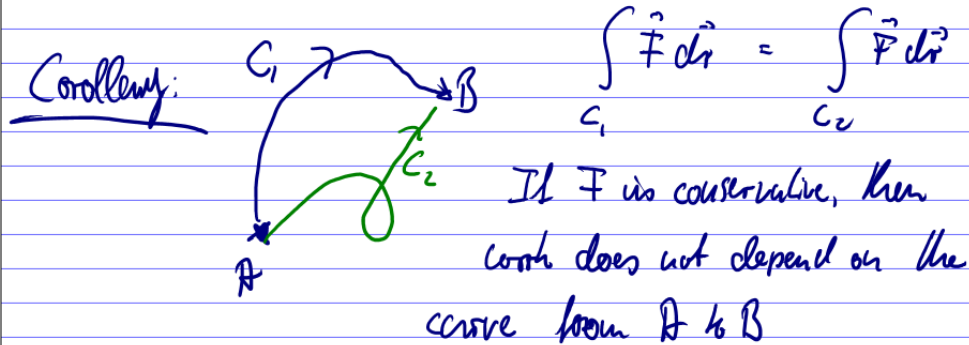 Corollary:
C₁
B
C₂
A
∫ F⃗ dr⃗ = ∫ F⃗ dr⃗
C₁ C₂
If F is conservative, then
work does not depend on the
curve from A to B